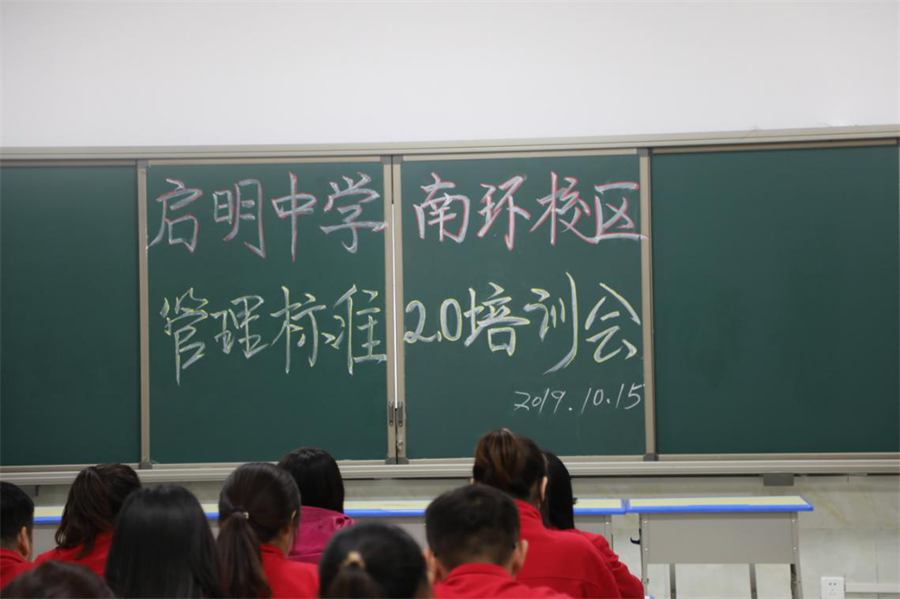 启明中学 南环校区
管理标准2.0培训会
2019.10.15